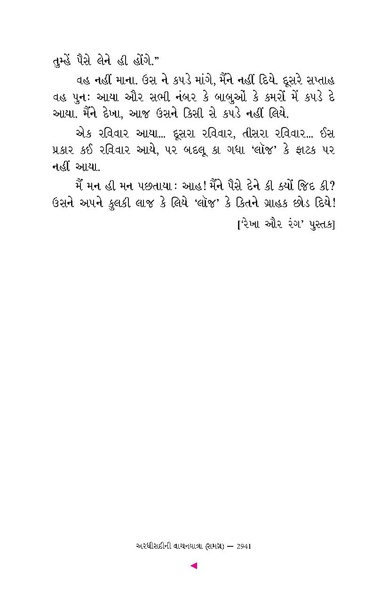 તુમ્હેં પૈસે લેને હી હોંગે.”
વહ નહીં માના. ઉસ ને કપડે માંગે, મૈંને નહીં દિયે. દૂસરે સપ્તાહ
વહ પુનઃ આયા ઔર સભી નંબર કે બાબુઓં કે કમરોં મેં કપડે દે
આયા. મૈંને દેખા, આજ ઉસને કિસી સે કપડે નહીં લિયે.
એક રવિવાર આયા... દૂસરા રવિવાર, તીસરા રવિવાર... ઈસ
પ્રકાર કઈ રવિવાર આયે, પર બદલૂ કા ગધા ‘લૉજ’ કે ફાટક પર
નહીં આયા.
મૈં મન હી મન પછતાયા : આહ! મૈંને પૈસે દેને કી ક્યોં જિદ કી?
ઉસને અપને કુલકી લાજ કે લિયે ‘લૉજ’ કે કિતને ગ્રાહક છોડ દિયે!
[‘રેખા ઔર રંગ’ પુસ્તક]
અરધીસદીની વાચનયાત્રા (સમગ્ર) — 2941